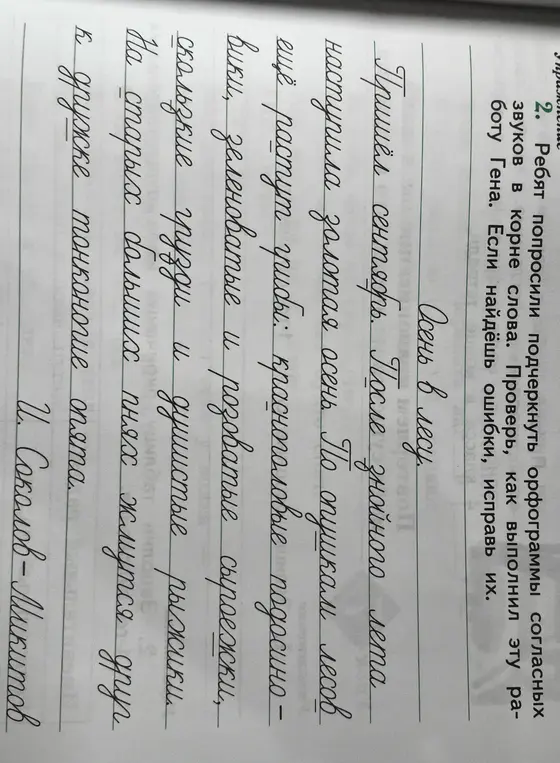 2. Ребят попросили подчеркнуть орфограммы согласных
звуков в корне слова. Проверь, как выполнил эту ра-
боту Гена. Если найдёшь ошибки, исправь их.
Осень в лесу.
Пришёл сентябрь. После знойного лета
наступила золотая осень. По опушкам лесов
ещё растут грибы: красноголовые подосино-
вики, зеленоватые и розоватые сыроежки,
скользкие грузди и душистые рыжики.
На старых больших пнях жмутся друг
к дружке тонконогие опята.
И. Соколов-Микитов